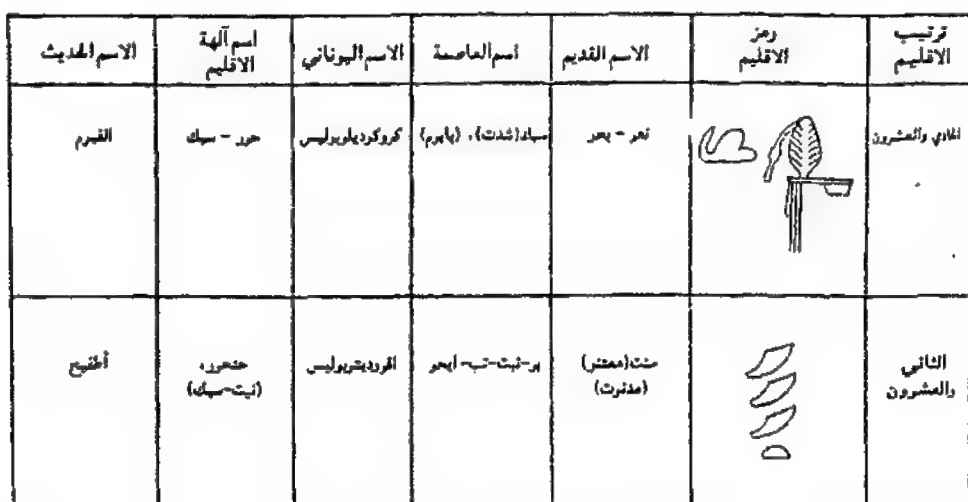 ترتيب الاقليم	رمز الاقليم	الاسم القديم	اسم العاصمة	الاسم اليوناني	اسم آلهة الاقليم	الاسم الحديث
الحادي والعشرون	نعر - بحر	سبك (شدت)، (بايوم)	كروكرديلوبوليس	حور - سبك	الفيوم
الثاني والعشرون	منت (معتنر) (مدنرت)	بر-نبت-تب-ايحو	افروديتربوليس	حتحور، (نيت-سبك)	أطفيح